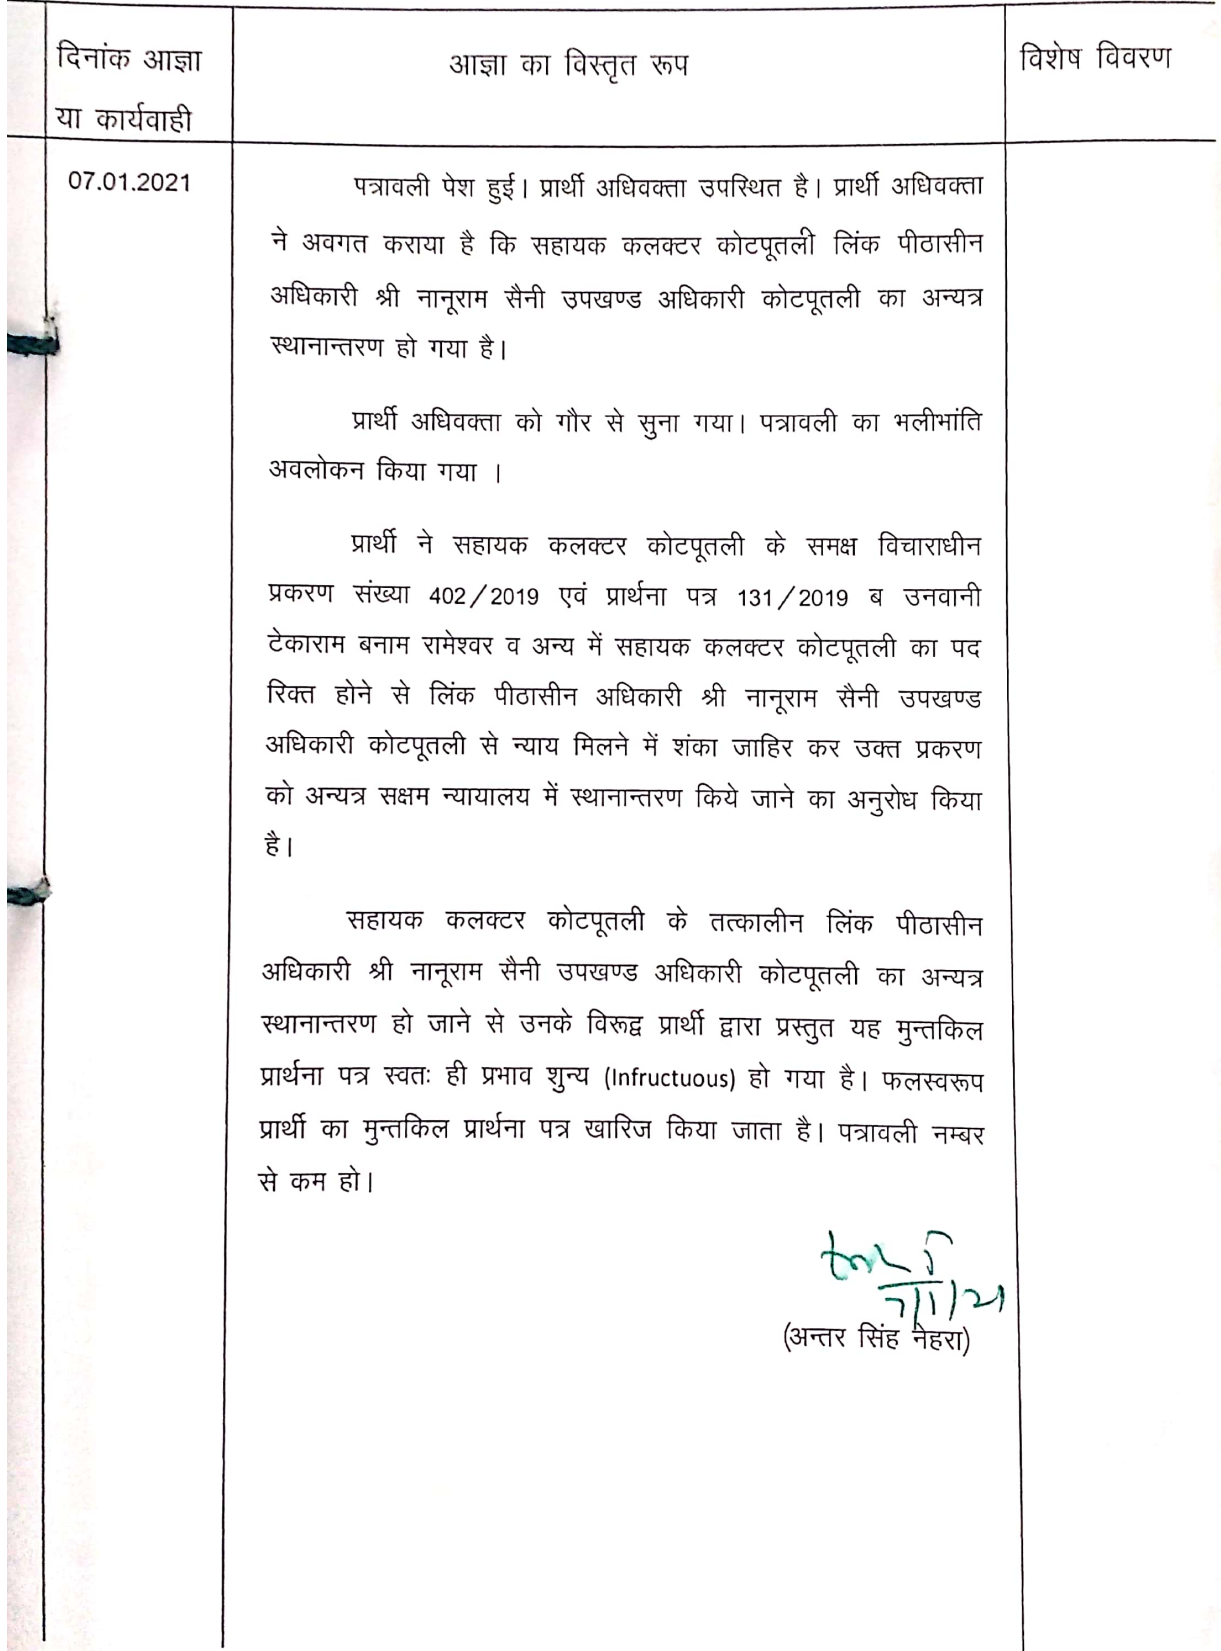 दिनांक आज्ञा
या कार्यवाही
आज्ञा का विस्तृत रूप
विशेष विवरण
07.01.2021
पत्रावली पेश हुई। प्रार्थी अधिवक्ता उपस्थित है। प्रार्थी अधिवक्ता
ने अवगत कराया है कि सहायक कलक्टर कोटपूतली लिंक पीठासीन
अधिकारी श्री नानूराम सैनी उपखण्ड अधिकारी कोटपूतली का अन्यत्र
स्थानान्तरण हो गया है।
प्रार्थी अधिवक्ता को गौर से सुना गया। पत्रावली का भलीभांति
अवलोकन किया गया ।
प्रार्थी ने सहायक कलक्टर कोटपूतली के समक्ष विचाराधीन
प्रकरण संख्या 402/2019 एवं प्रार्थना पत्र 131/2019 ब उनवानी
टेकाराम बनाम रामेश्वर व अन्य में सहायक कलक्टर कोटपूतली का पद
रिक्त होने से लिंक पीठासीन अधिकारी श्री नानूराम सैनी उपखण्ड
अधिकारी कोटपूतली से न्याय मिलने में शंका जाहिर कर उक्त प्रकरण
को अन्यत्र सक्षम न्यायालय में स्थानान्तरण किये जाने का अनुरोध किया
है।
सहायक कलक्टर कोटपूतली के तत्कालीन लिंक पीठासीन
अधिकारी श्री नानूराम सैनी उपखण्ड अधिकारी कोटपूतली का अन्यत्र
स्थानान्तरण हो जाने से उनके विरूद्व प्रार्थी द्वारा प्रस्तुत यह मुन्तकिल
प्रार्थना पत्र स्वतः ही प्रभाव शुन्य (Infructuous) हो गया है। फलस्वरूप
प्रार्थी का मुन्तकिल प्रार्थना पत्र खारिज किया जाता है। पत्रावली नम्बर
से कम हो।
7/1/21
(अन्तर सिंह नेहरा)